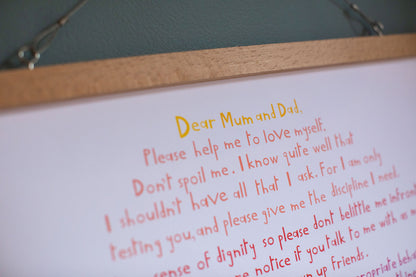 Dear Mum and Dad,
Please help me to love myself.
Don't spoil me. I know quite well that
I shouldn't have all that I ask. For I am only
testing you, and please give me the discipline I need.
sense of dignity so please dont belittle me infront
me notice if you talk to me with
up friends.